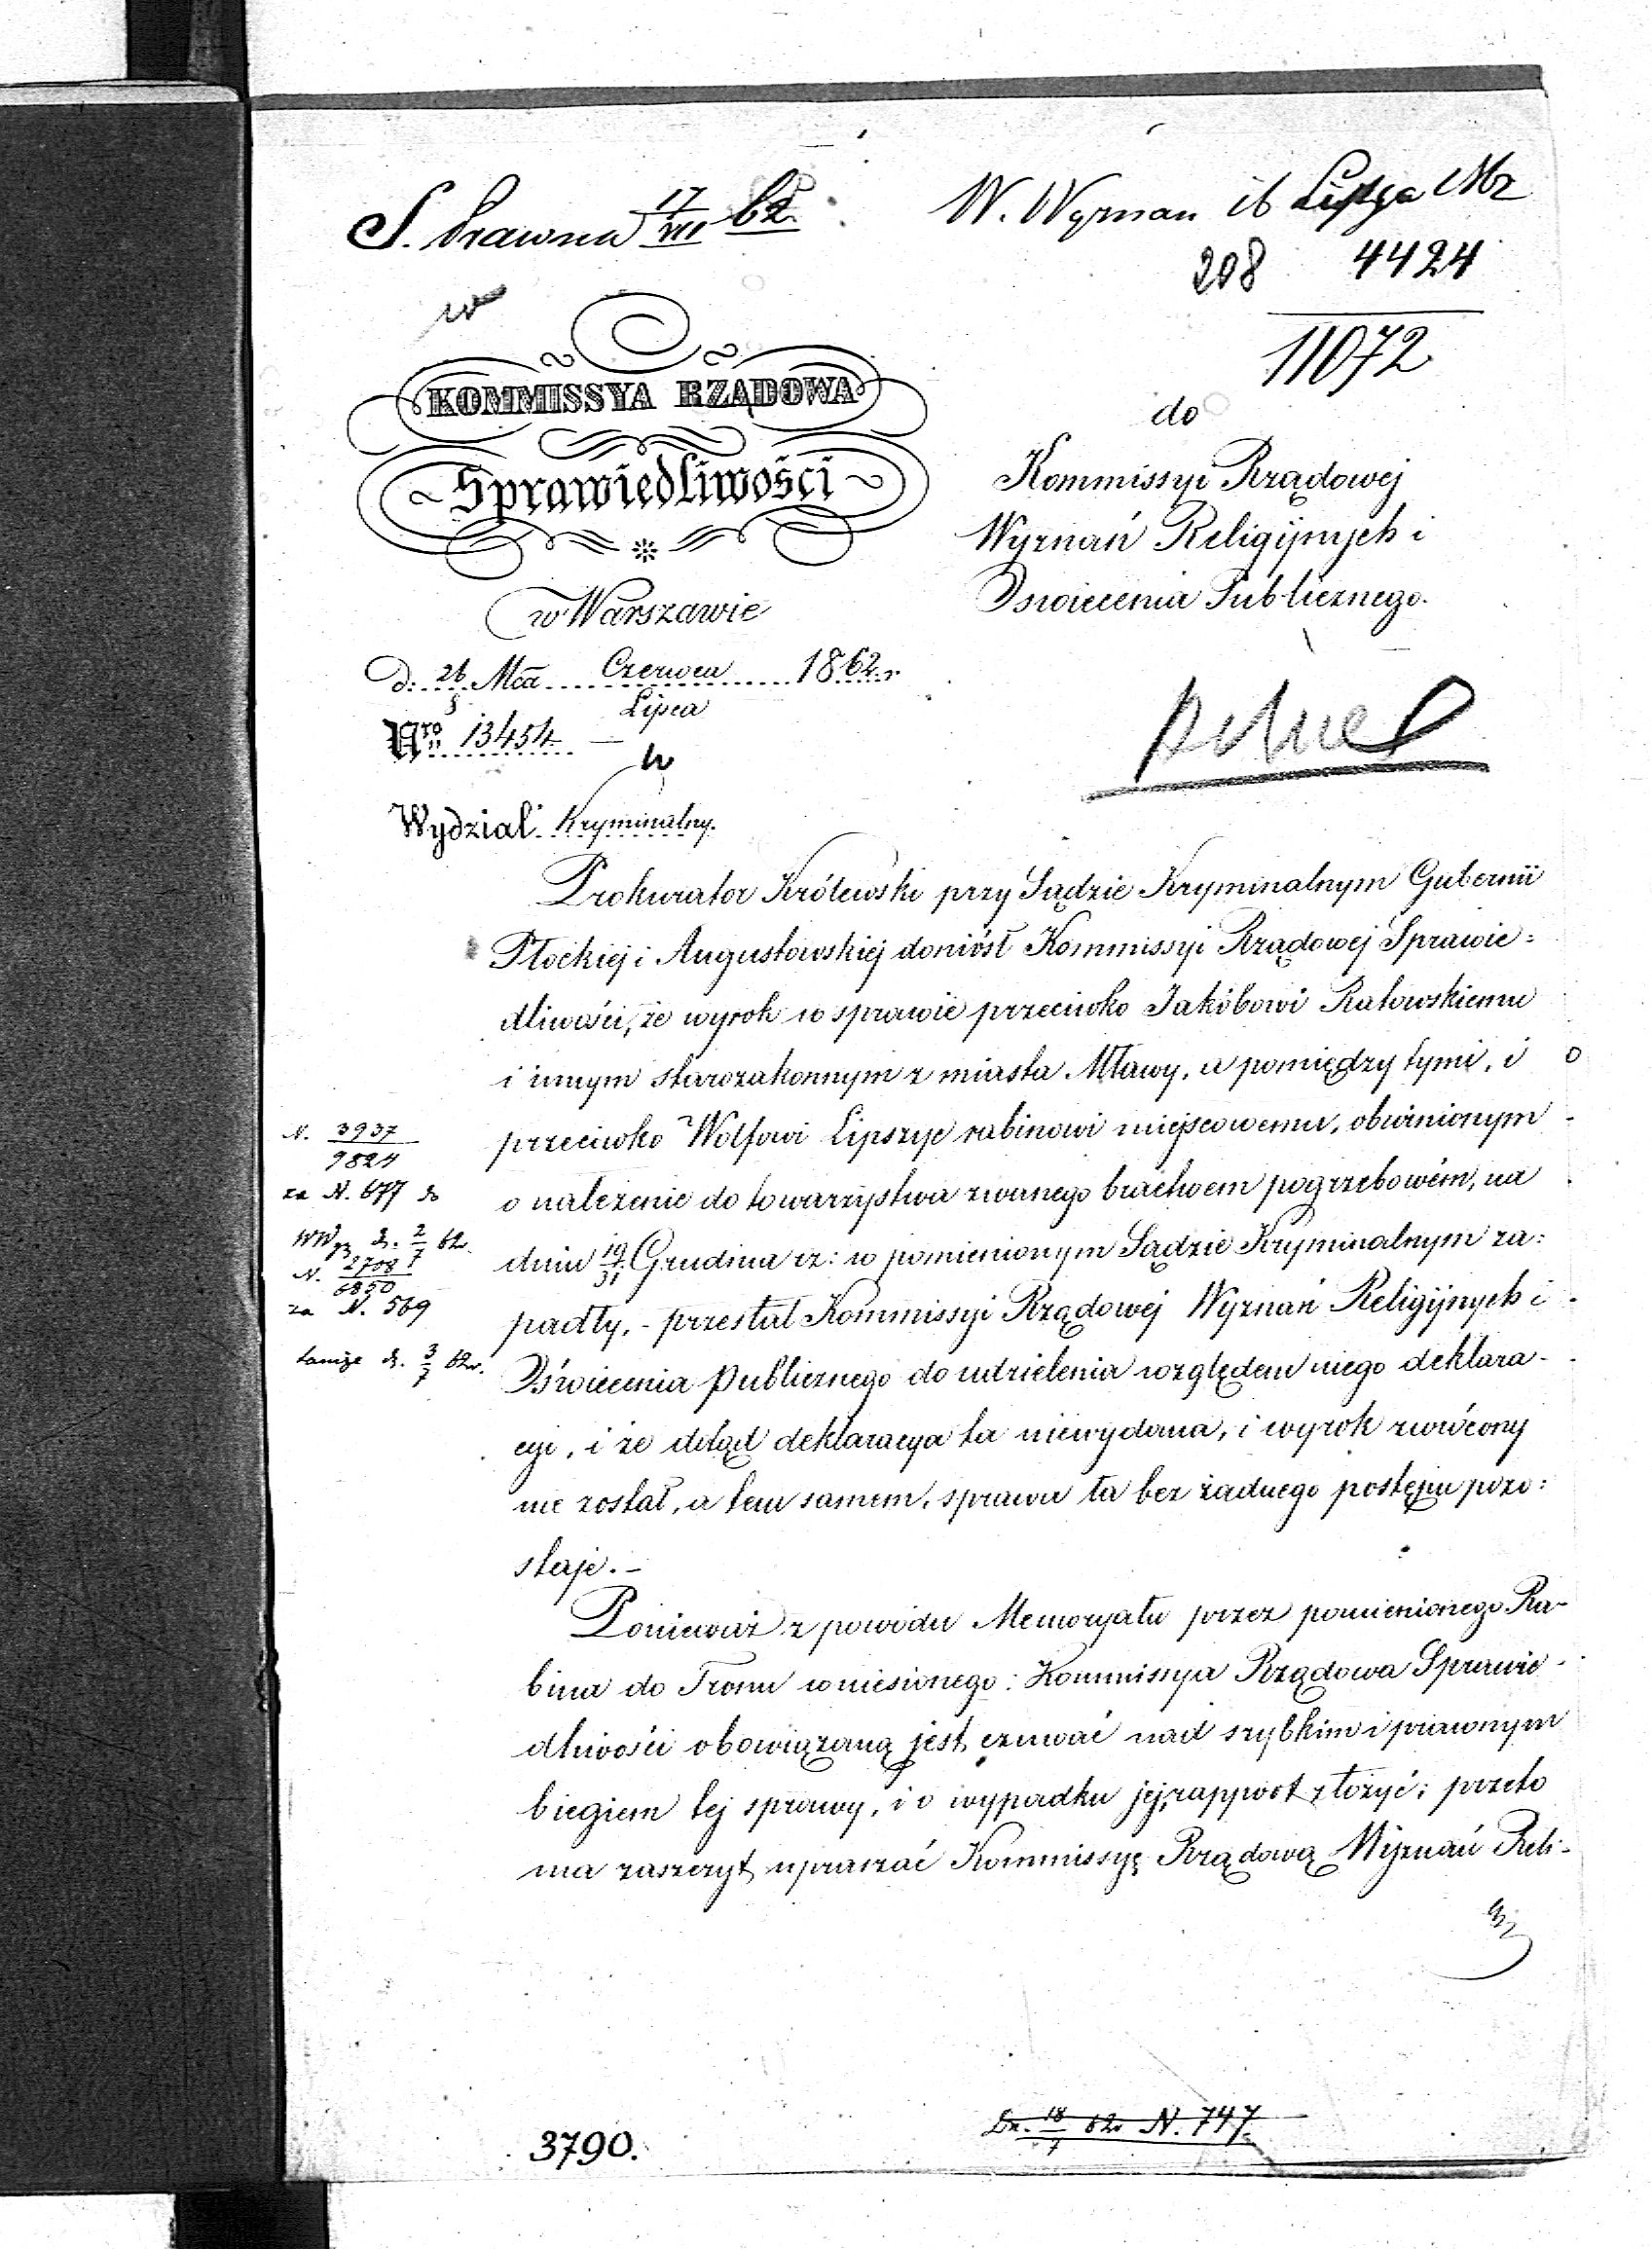 S. Prawna 17/VII 62.
W. Wyznan 16 Lipca
208 4424
11072
KOMMISSYA RZĄDOWA
Sprawiedliwości
w Warszawie
D. 26 Mca Czerwca 1862 r
8 Lipca
Nro 13454
Wydział Kryminalny.
do
Kommissyi Rządowej
Wyznań Religijnych i
Oswiecenia Publicznego.
pilne
Prokurator Królewski przy Sądzie Kryminalnym Gubernii
Płockiej i Augustowskiej doniósł Kommissyi Rządowej Sprawie=
dliwości, że wyrok w sprawie przeciwko Jakóbowi Ratowskiemu
i innym starozakonnym z miasta Mławy, a pomiędzy tymi, i
przeciwko Wolfowi Lipszyc rabinowi miejscowemu, obwinionym
o należenie do towarzystwa zwanego bractwem pogrzebowém, na
dniu 19/31 Grudnia rz: w pomienionym Sądzie Kryminalnym za:
padły, - przesłał Kommissyi Rządowej Wyznań Religijnych i
Oświecenia Publicznego do udzielenia względem niego deklara-
cyi, i że dotąd deklaracya ta niewydana, i wyrok zwrócony
nie został, a tem samem, sprawa ta bez żadnego postępu pozo:
staje. -
Ponieważ z powodu Memoryału przez pomienionego Ra-
bina do Tronu wniesionego: Kommissya Rządowa Sprawie-
dliwości obowiązaną jest, czuwać nad szybkim i prawnym
biegiem tej sprawy, i o wypadku jej, rapport złożyć; przeto
ma zaszczyt upraszać Kommissyę Rządową Wyznań Reli-
N. 3937/9824
za N. 677 do
d. 2/7 62r.
N. 2708/6850
za N. 569
tamże d. 3/7 62r.
3790.
Dz. 18/7 62r N. 747.